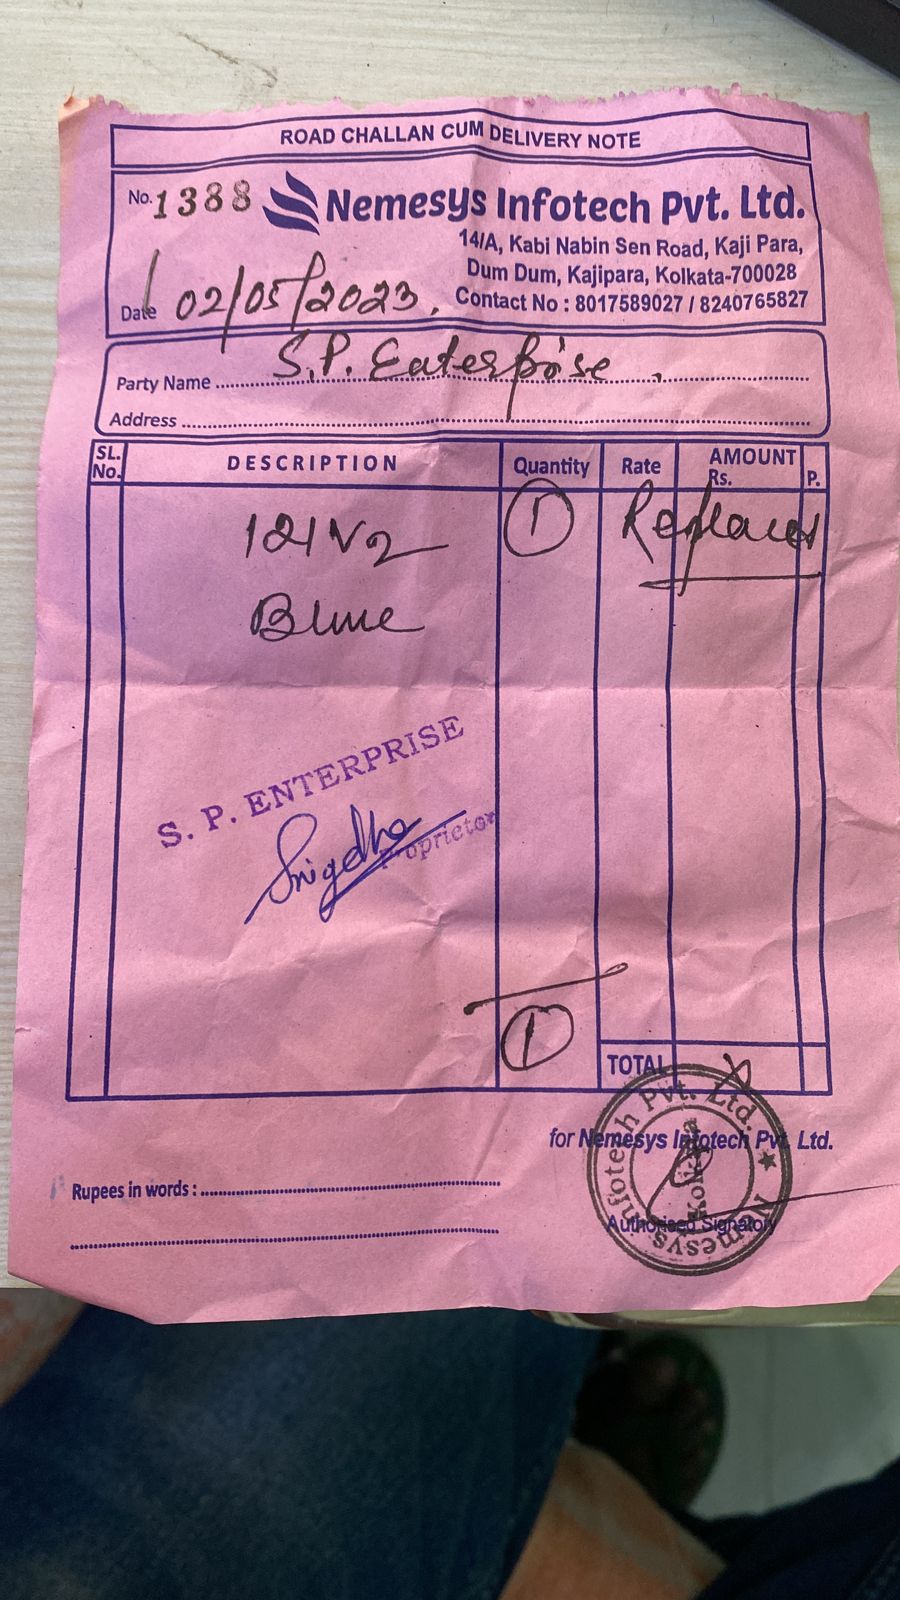 ROAD CHALLAN CUM DELIVERY NOTE
No. 1388
Nemesys Infotech Pvt. Ltd.
14/A, Kabi Nabin Sen Road, Kaji Para,
Dum Dum, Kajipara, Kolkata-700028
Contact No : 8017589027 / 8240765827
Date 02/05/2023
Party Name S.P. Enterprise
Address
SL. No. DESCRIPTION Quantity Rate AMOUNT Rs. P.
121V2 1
Blue
S. P. ENTERPRISE
Snigdha
Proprietor
1
TOTAL
for Nemesys Infotech Pvt. Ltd.
Nemesys Infotech Pvt. Ltd. ★
Kolkata
Rupees in words :
Authorised Signatory